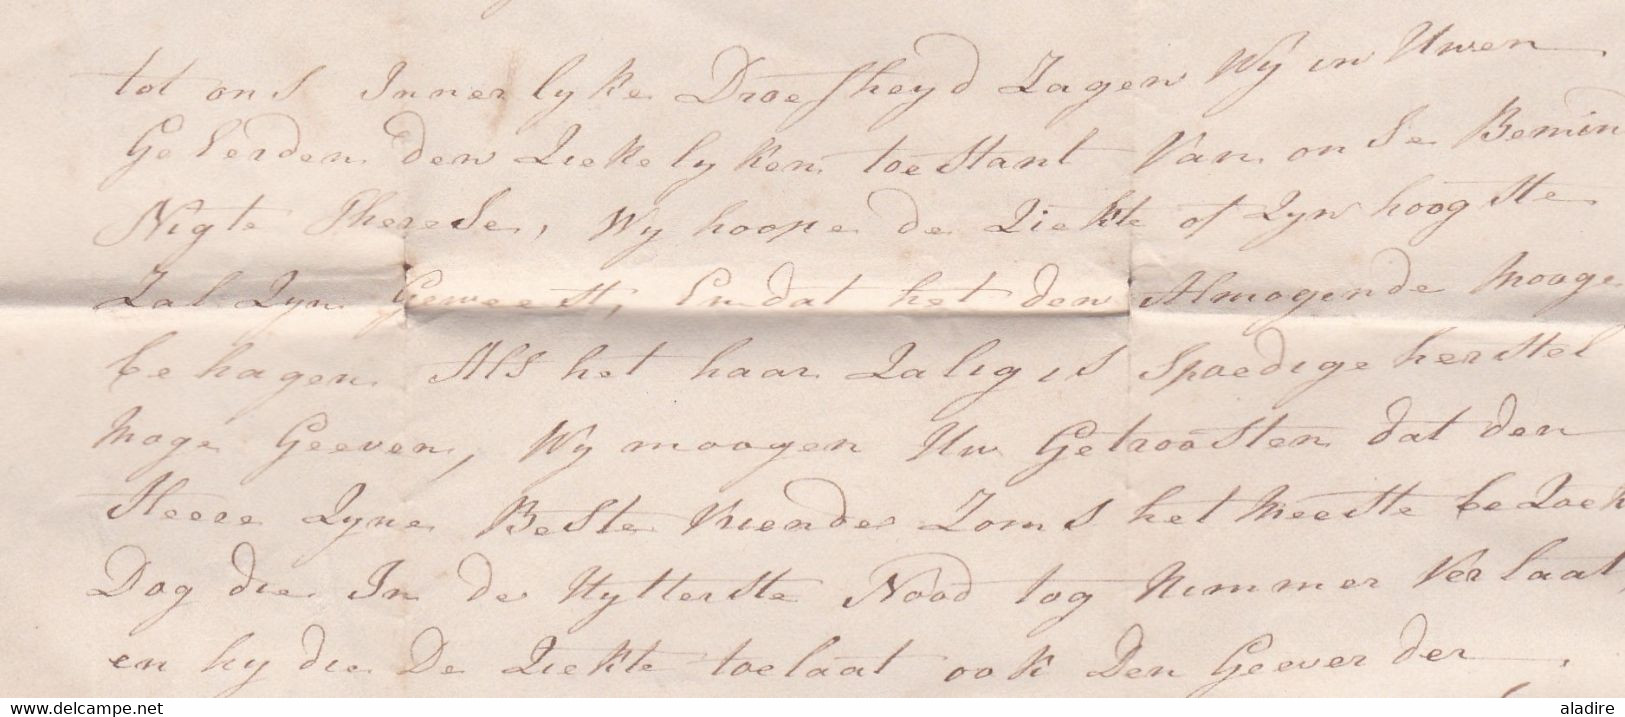 tot ons Innerlyke Droefheyd Zagen Wy in Uwen
Geëerden den Ziekelyken toestant Van onse Bemin
Nigte Therese, Wy hoope de Ziekte op Zyn hoogste
Zal Zyn Geweest, En dat het den Almogende Mooge
behagen Als het haar Zalig is Spoedige herstel
Moge Geeven, Wy moogen Uw Getroosten dat den
Heere Zyne Beste Vriende Zoms het Meeste bezoek
Dog die In de Uytterste Nood tog Nimmer Verlaat,
en hy die De Ziekte toelaat ook Den Geever der
delcampe.net
aladire